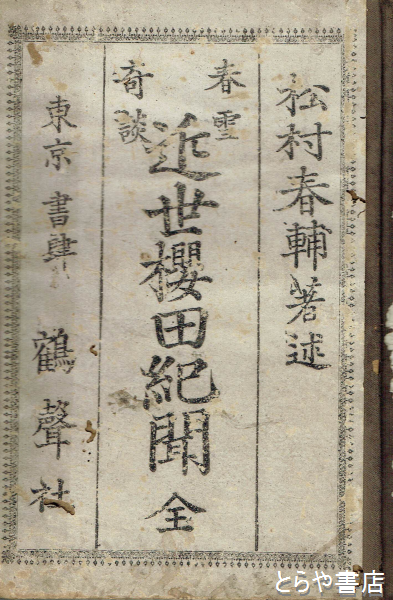 松村春輔著述
春雪
奇談
近世櫻田紀聞 全
東京 書肆 鶴聲社
とらや書店